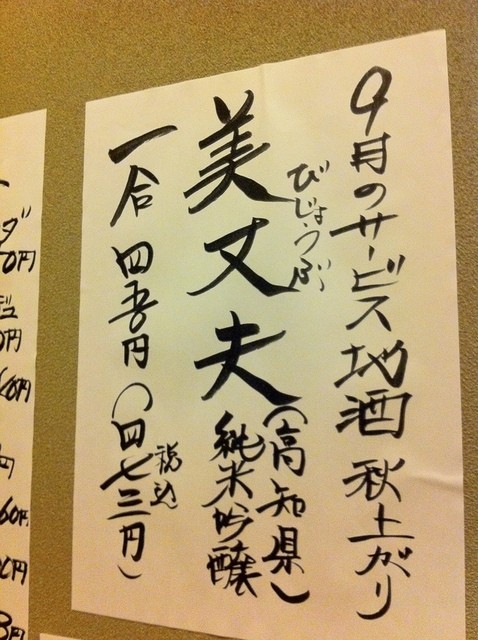 9月のサービス地酒 秋上がり
びじょうぶ
美丈夫(高知県)
純米吟醸
一合 四五〇円(四七三円)
税込
ダ
0円
ジュ
0円
60円
円
60円
0円
0円